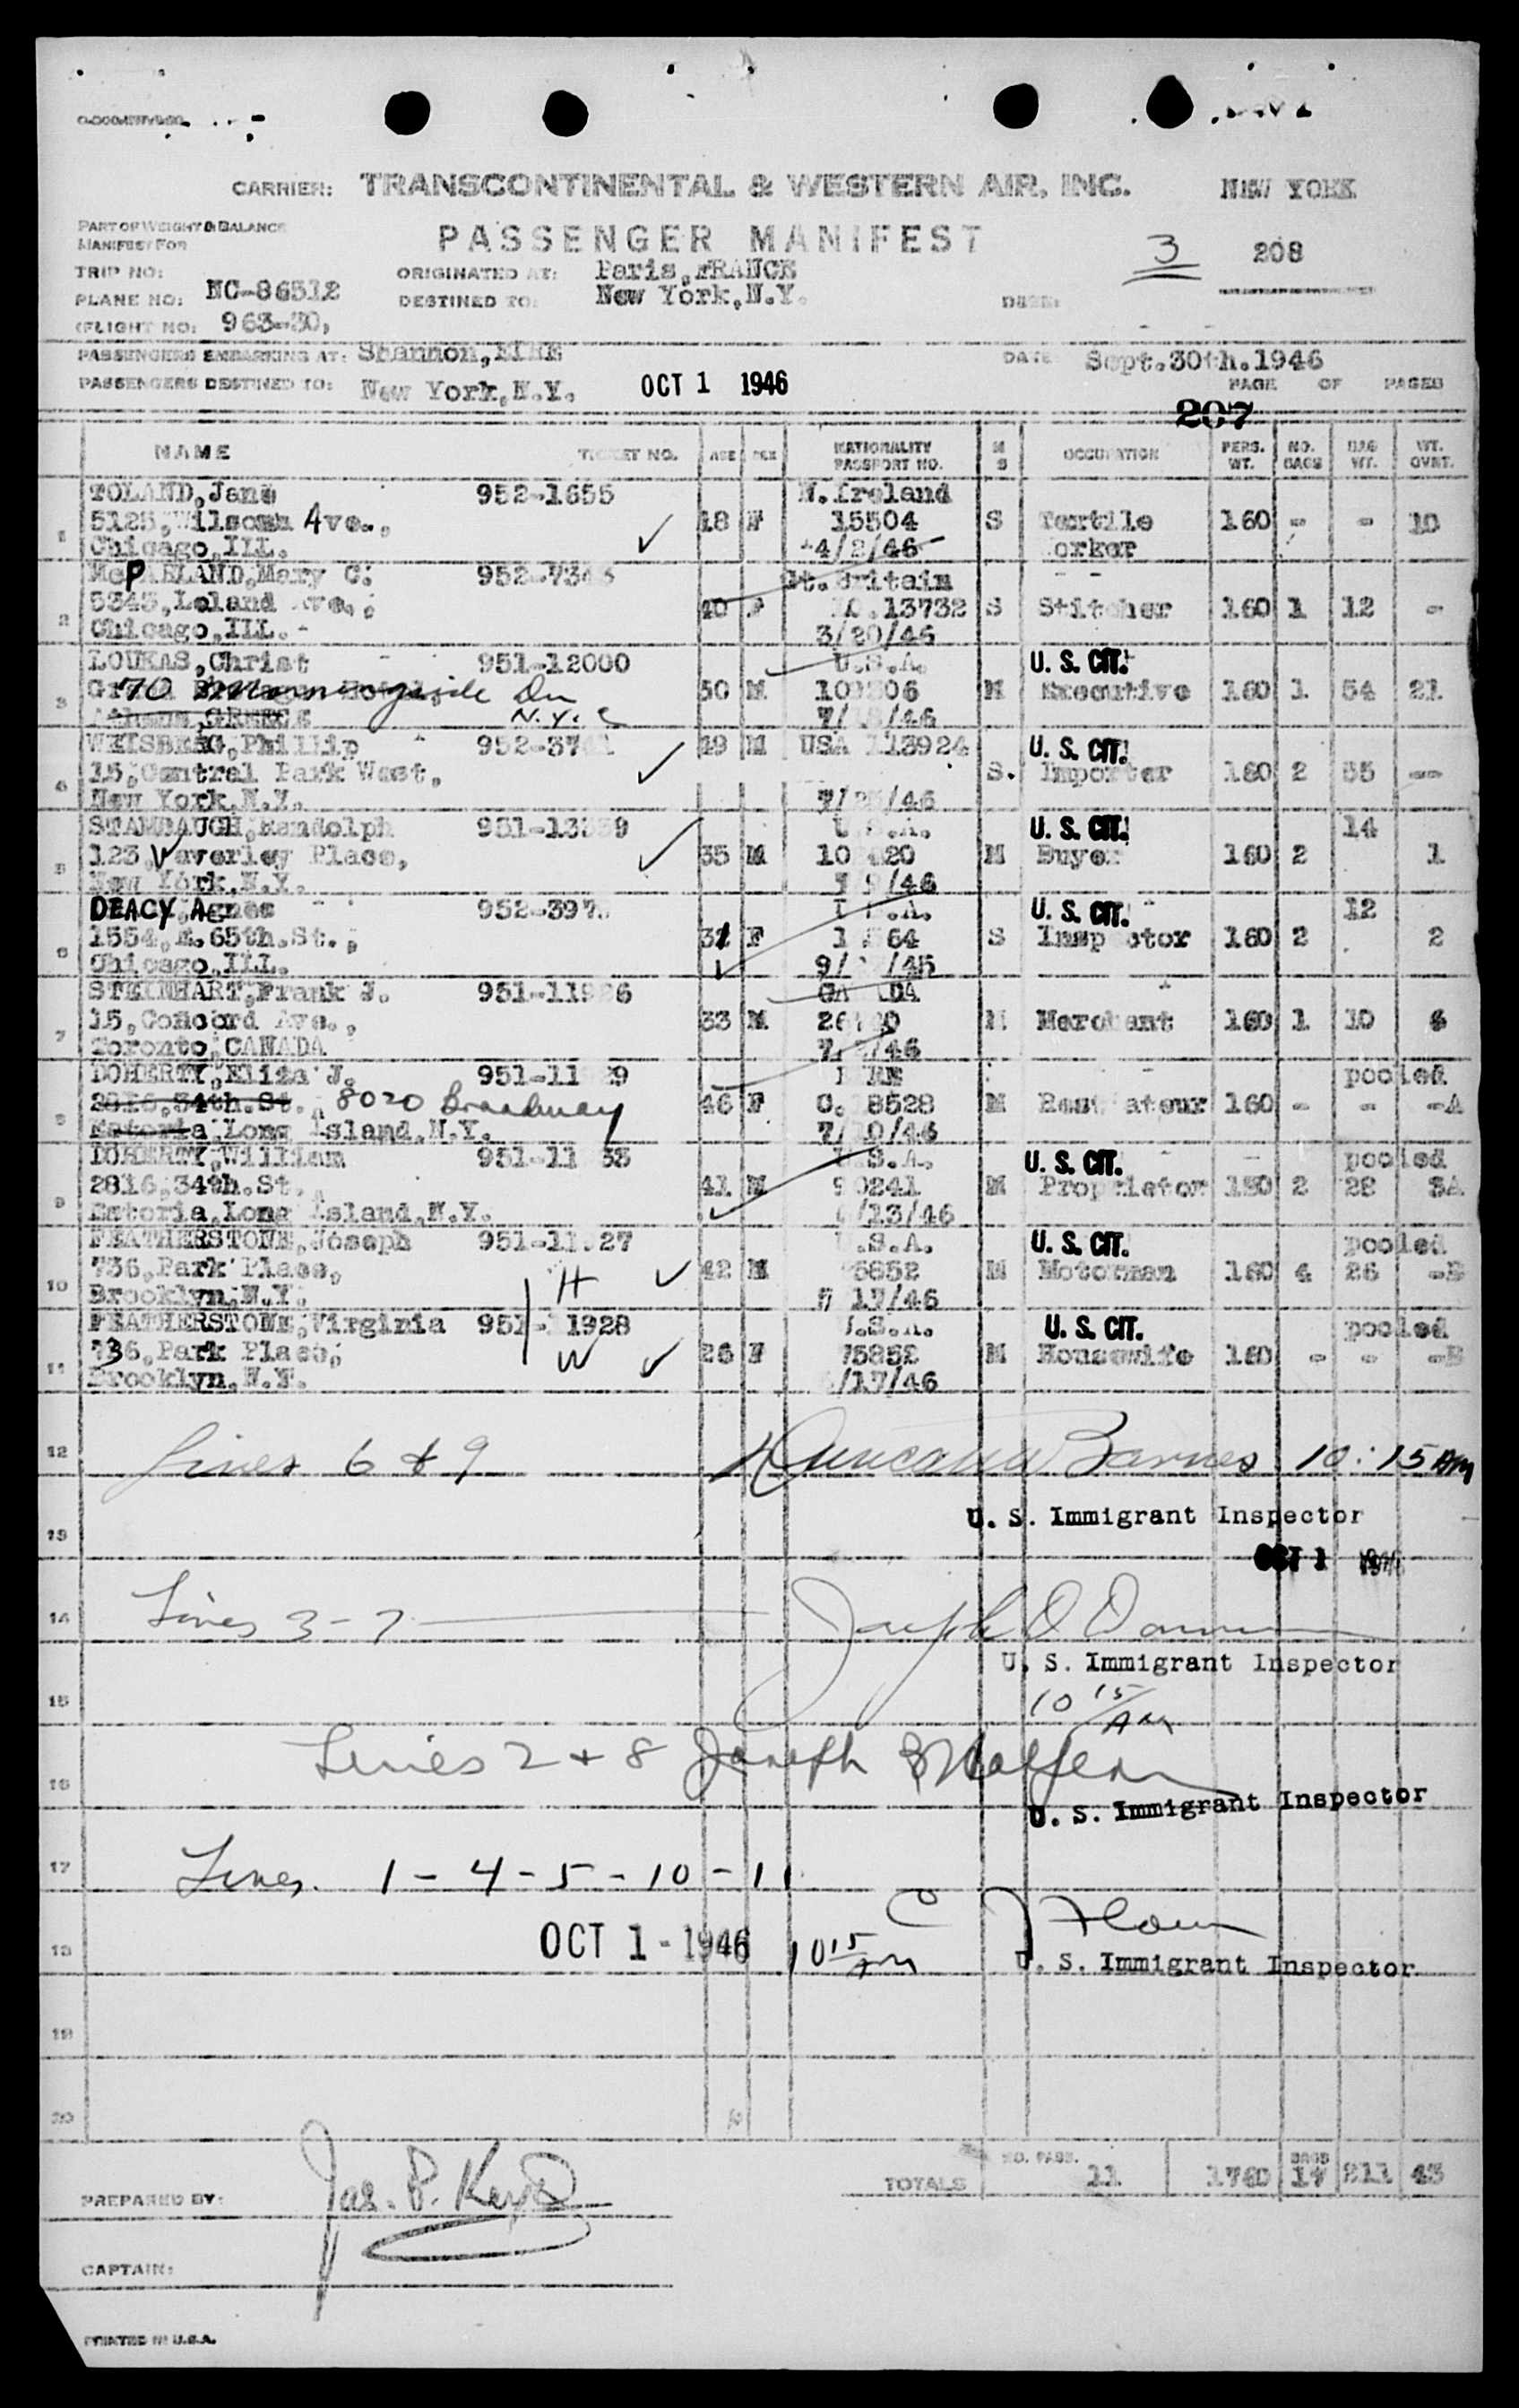 CARRIER: TRANSCONTINENTAL & WESTERN AIR, INC. NEW YORK
PART OF WEIGHT & BALANCE
MANIFEST FOR
PASSENGER MANIFEST 3 208
TRIP NO:
ORIGINATED AT: Paris, FRANCE
PLANE NO: NC-86512
DESTINED TO: New York, N.Y.
DATE:
(FLIGHT NO: 963-30,
PASSENGERS EMBARKING AT: Shannon, EIRE DATE Sept.30th.1946
PASSENGERS DESTINED TO: New York, N.Y. OCT 1 1946 PAGE OF PAGES
207
NAME TICKET NO. AGE SEX NATIONALITY PASSPORT NO. M S OCCUPATION PERS. WT. NO. BAGS BAG WT. WT. OVWT.
TOLAND, Jane 952-1655 N. Ireland
1 5125, Wilsomn Ave., 18 F 15504 S Textile 160 - - 10
Chicago, ILL. 4/2/46 orker
McPARLAND, Mary C. 952- Gt. Britain
2 5343, Leland Ave., 40 F 13732 S Stitcher 160 1 12 -
Chicago, ILL. - 3/20/46
LOUKAS, Christ 951-12000 U.S.A. U. S. CIT.
3 70 Morningside Dr 50 M M Executive 160 1 54 21
Athens, GREECE N.Y.C 7/ /46
WEISBERG, Phillip 952- 49 M USA 113924 U. S. CIT.
4 15, Central Park West, S. Importer 160 2 55 --
New York, N.Y. 7/ /46
STAMBAUGH, Randolph 951- U.S.A. U. S. CIT. 14
5 123, Waverley Place, 35 M M Buyer 160 2 1
New York, N.Y. 9/46
DEACY, Agnes 952- U.S.A. U. S. CIT. 12
6 1554, E. 65th. St., F S Inspector 160 2 2
Chicago, ILL. 9/ /45
STEINHART, Frank J. 951- CANADA
7 15, Concord Ave., 33 M M Merchant 160 1 10 6
Toronto, CANADA 7/ /46
DOHERTY, Eliza J. 951- EIRE pooled
8 2816, 34th. St. 8020 Broadway 46 F C. 8528 M Restaurateur 160 - - -A
Astoria, Long Island, N.Y. 7/ 0/46
DOHERTY, William 951- U.S.A. U. S. CIT. pooled
9 2816, 34th. St. 41 M 90241 M Proprietor 28 3A
Astoria, Long Island, N.Y. /13/46
FEATHERSTONE, Joseph 951- U.S.A. U. S. CIT. pooled
10 736, Park Place, H 42 M 75852 M Motorman 160 4 26 -B
Brooklyn, N.Y. 17/46
FEATHERSTONE, Virginia 951-11928 U.S.A. U. S. CIT. pooled
11 736, Park Place, W 26 F 75852 M Housewife 160 - - -B
Brooklyn, N.Y. /17/46
12 Lines 6 & 9 Barnes 10:15 AM
U. S. Immigrant Inspector
13
OCT 1 1946
14 Lines 3-7 Joseph
U. S. Immigrant Inspector
15 10 15/AM
16 Lines 2 + 8 Joseph
U. S. Immigrant Inspector
17 Lines. 1 - 4 - 5 - 10 - 11
18 OCT 1 - 1946 10 15 AM
U. S. Immigrant Inspector
19
20
TOTALS NO. PASS. 11 1760 BAGS 17 211 43
PREPARED BY: Jas. P.
CAPTAIN:
PRINTED IN U.S.A.